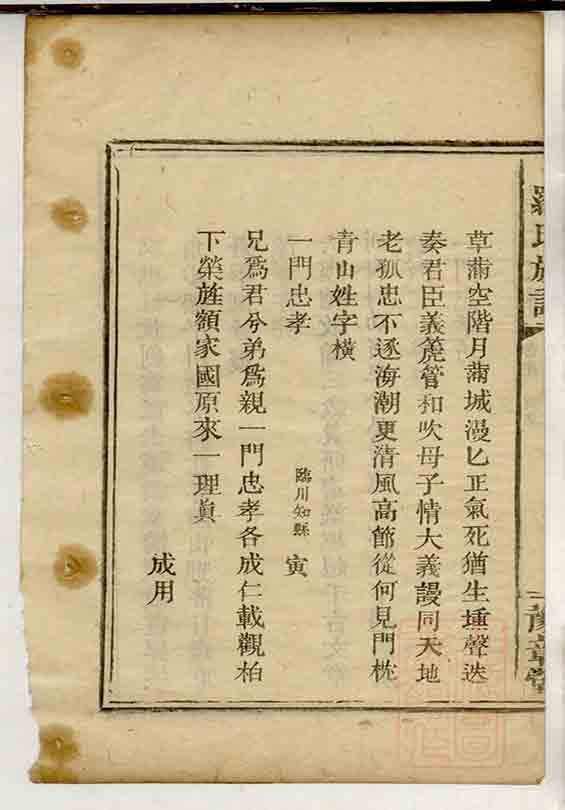 羅氏族譜
豫章堂
草滿空階月滿城漫匕正氣死猶生壎聲迭
奏君臣義箎管和吹母子情大義謾同天地
老孤忠不逐海潮更清風高節從何見門枕
青山姓字橫
一門忠孝
臨川知縣 寅
兄爲君兮弟爲親一門忠孝各成仁載觀柏
下榮旌額家國原來一理眞
成用